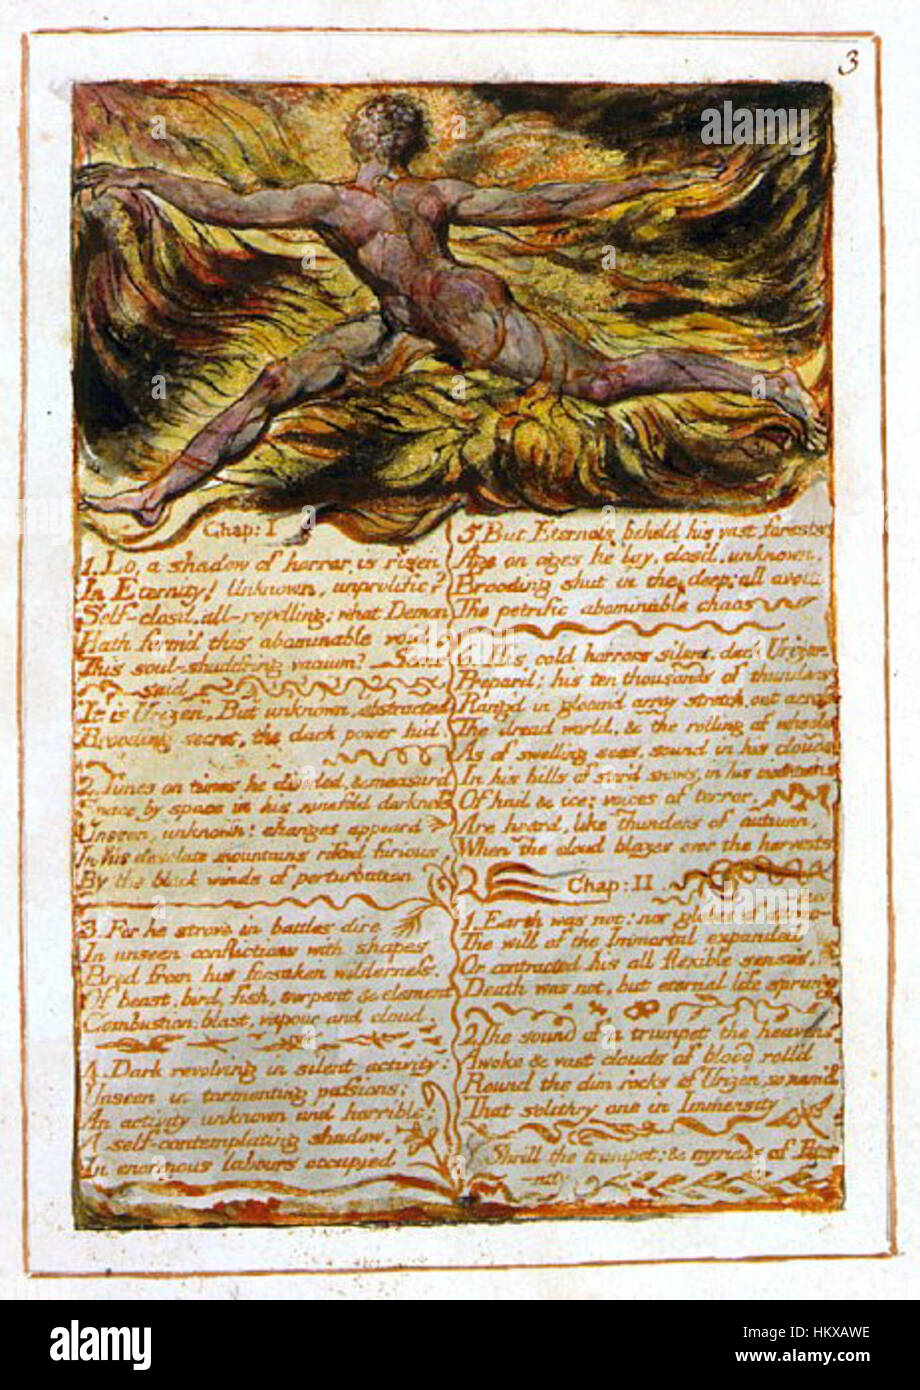 3
Chap: I
1. Lo, a shadow of horror is risen
In Eternity! Unknown, unprolific?
Self-closd, all-repelling: what Demon
Hath form'd this abominable void
This soul-shudd'ring vacuum? Some
said
It is Urizen, But unknown, abstracted
Brooding secret, the dark power hid.
2. Times on times he divided, & measur'd
Space by space in his ninefold darkness
Unseen, unknown: changes appeard
In his desolate mountains rifted furious
By the black winds of perturbation
3. For he strove in battles dire
In unseen conflictions with shapes
Bred from his forsaken wilderness,
Of beast, bird, fish, serpent & element
Combustion, blast, vapour and cloud.
4. Dark revolving in silent activity:
Unseen in tormenting passions;
An activity unknown and horrible;
A self-contemplating shadow,
In enormous labours occupied
5. But Eternals beheld his vast forests
Age on ages he lay, clos'd, unknown,
Brooding shut in the deep; all avoid
The petrific abominable chaos
6. His cold horrors silent, dark Urizen
Prepar'd; his ten thousands of thunders
Rang'd in gloom'd array stretch out across
The dread world, & the rolling of wheels
As of swelling seas, sound in his clouds
In his hills of stor'd snows, in his mountains
Of hail & ice; voices of terror,
Are heard, like thunders of autumn,
When the cloud blazes over the harvests
Chap: II
1. Earth was not: nor globes of attrac-
tion
The will of the Immortal expanded
Or contracted his all flexible senses.
Death was not, but eternal life sprung
2. The sound of a trumpet the heavens
Awoke & vast clouds of blood roll'd
Round the dim rocks of Urizen, so nam'd
That solitary one in Immensity
Shrill the trumpet: & myriads of Eter-
-nity
alamy
alamy
alamy stock photo
HKXAWE
www.alamy.com